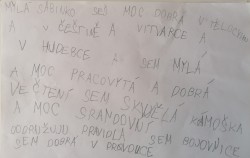 MYLÁ SABINKO SEŠ MOC DOBRÁ V TĚLOCVIKU
A V ČEŠTINĚ A VÝTVARCE A
V HUDEBCE SEM MYLÁ
A MOC PRACOVYTÁ A DOBRÁ
VE ČTENÍ SEM SKVJELÁ KÁMOŠKA
A MOC SRANDOVNÍ
DODRŽUJU PRAVIDLA SEM BOJOVNICE
SEM DOBRÁ V PRVOUCE